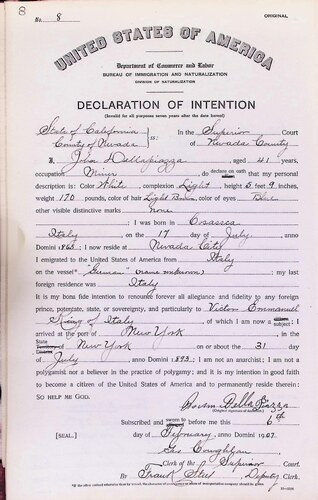 8
No. 8 ORIGINAL
UNITED STATES OF AMERICA
Department of Commerce and Labor
BUREAU OF IMMIGRATION AND NATURALIZATION
DIVISION OF NATURALIZATION
DECLARATION OF INTENTION
(Invalid for all purposes seven years after the date hereof)
State of California
County of Nevada
In the Superior Court
of Nevada County
I, John Dellapiazza, aged 41 years,
occupation Miner, do declare on oath that my personal
description is: Color White, complexion Light, height 5 feet 9 inches,
weight 170 pounds, color of hair Light Brown, color of eyes Blue
other visible distinctive marks none
I was born in
Italy on the 17 day of July, anno
Domini 1865; I now reside at Nevada City
I emigrated to the United States of America from Italy
on the vessel "German" (name unknown); my last
foreign residence was Italy
It is my bona fide intention to renounce forever all allegiance and fidelity to any foreign
prince, potentate, state, or sovereignty, and particularly to Victor Emmanuel
King of Italy, of which I am now a subject; I
arrived at the port of New York, in the
State of New York on or about the 31 day
of July, anno Domini 1893; I am not an anarchist; I am not a
polygamist nor a believer in the practice of polygamy; and it is my intention in good faith
to become a citizen of the United States of America and to permanently reside therein:
SO HELP ME GOD.
Della Piazza
(Original signature of declarant)
Subscribed and sworn to before me this 6th
[SEAL.] day of February, anno Domini 1907.
Geo Coughlan
Clerk of the Superior Court.
By Frank Steel, Deputy Clerk.